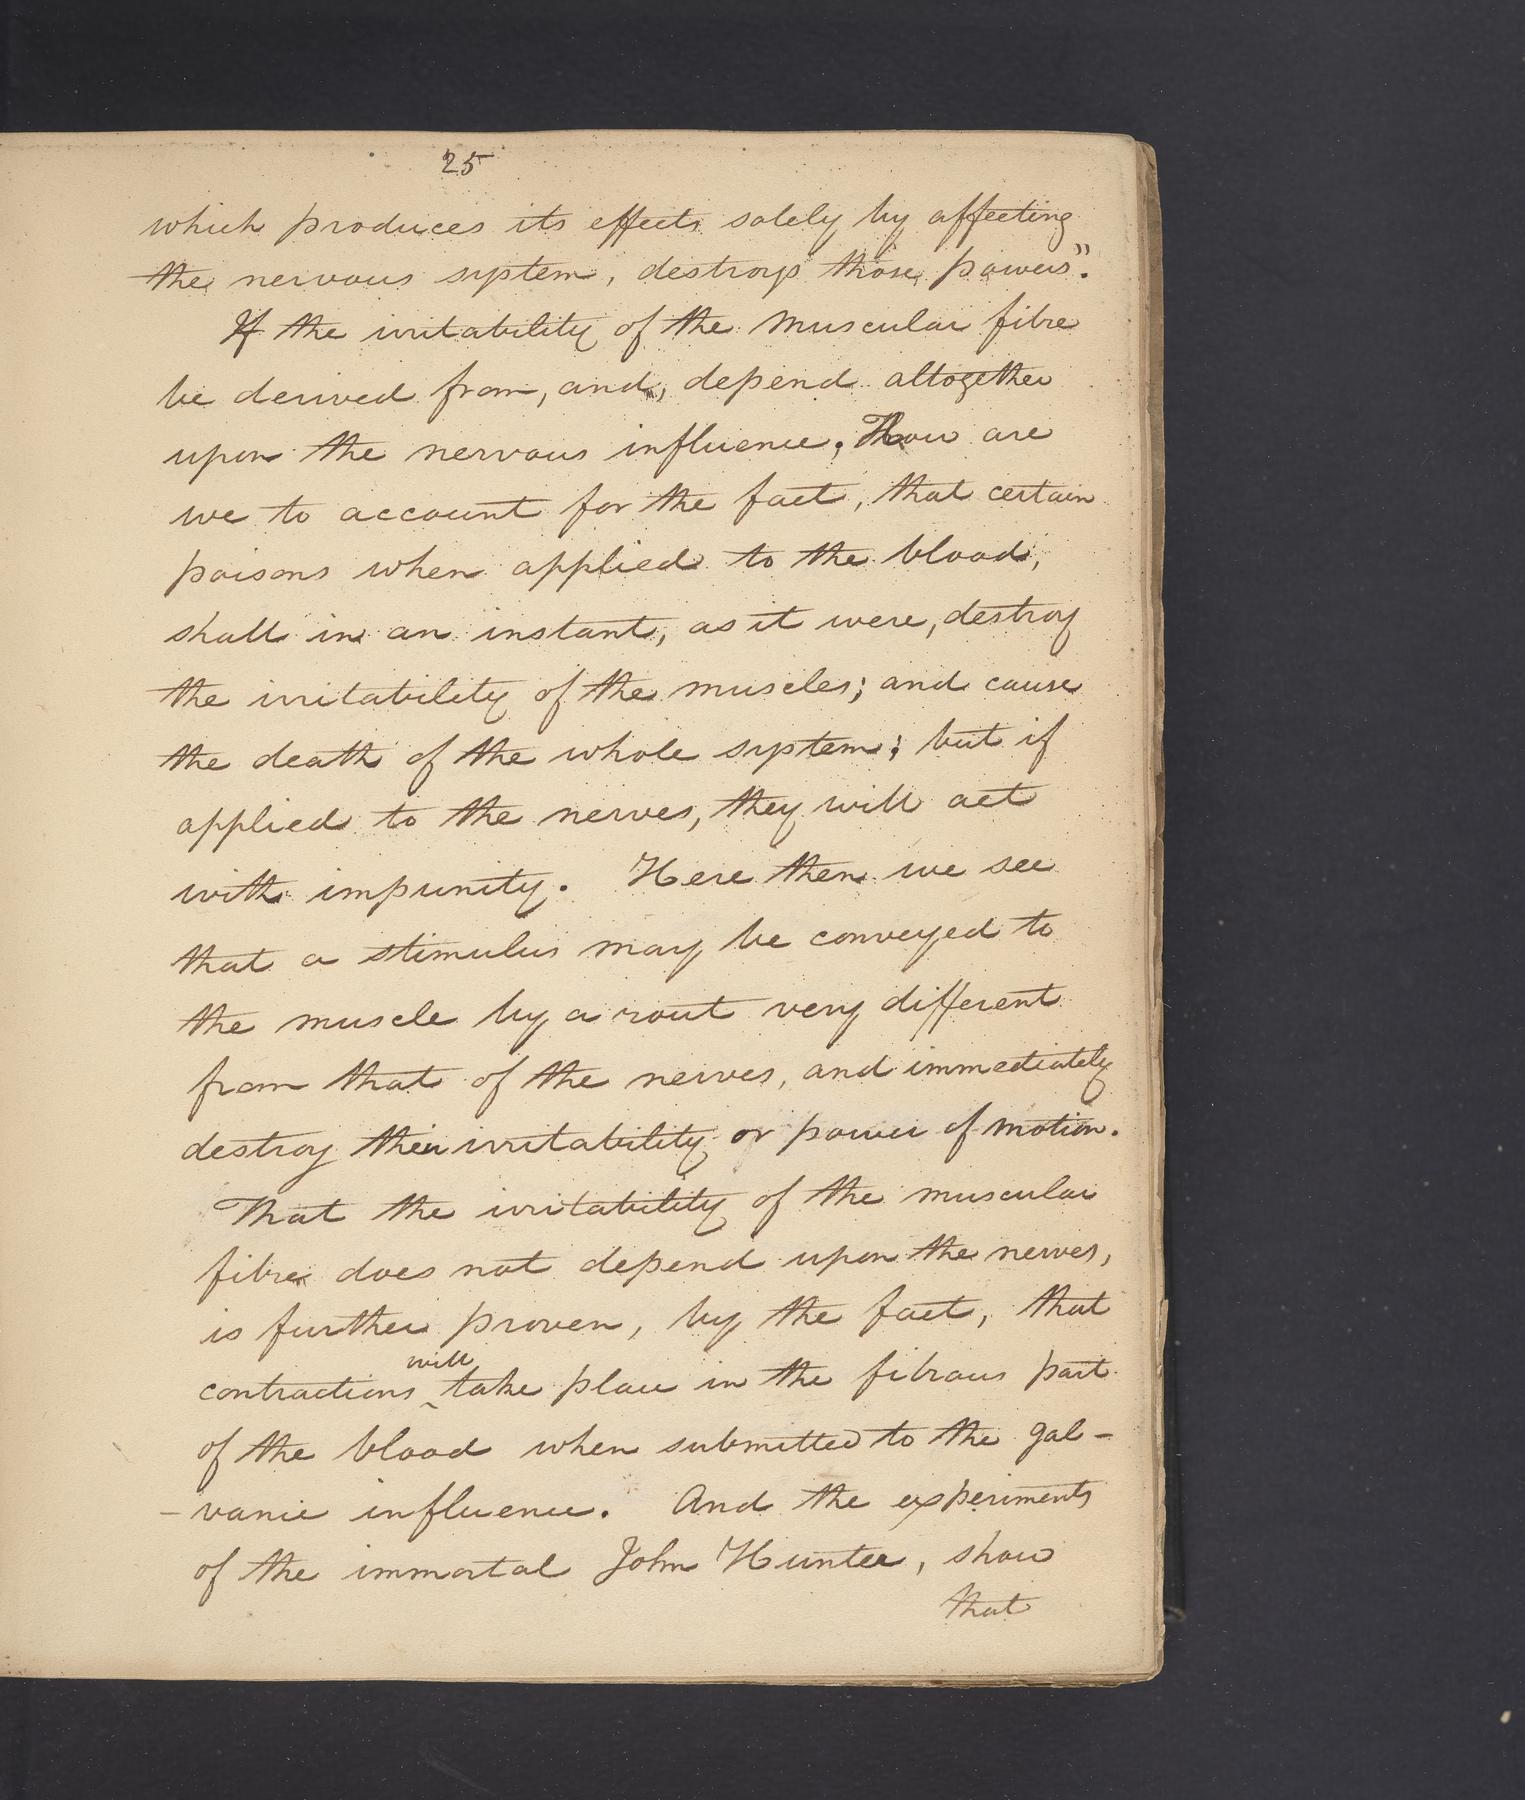 25
which produces its effects solely by affecting
the nervous system, destroys those powers".
If the irritability of the muscular fibre
be derived from, and, depend altogether
upon the nervous influence, How are
we to account for the fact, that certain
poisons when applied to the blood,
shall in an instant, as it were, destroy
the irritability of the muscles; and cause
the death of the whole system; but if
applied to the nerves, they will act
with impunity. Here then we see
that a stimulus may be conveyed to
the muscle by a rout very different
from that of the nerves, and immediately
destroy their irritability or power of motion.
That the irritability of the muscular
fibre does not depend upon the nerves,
is further proven, by the fact, that
will
contractions ‸ take place in the fibrous part
of the blood when submitted to the gal-
-vanic influence. And the experiments
of the immortal John Hunter, show
that